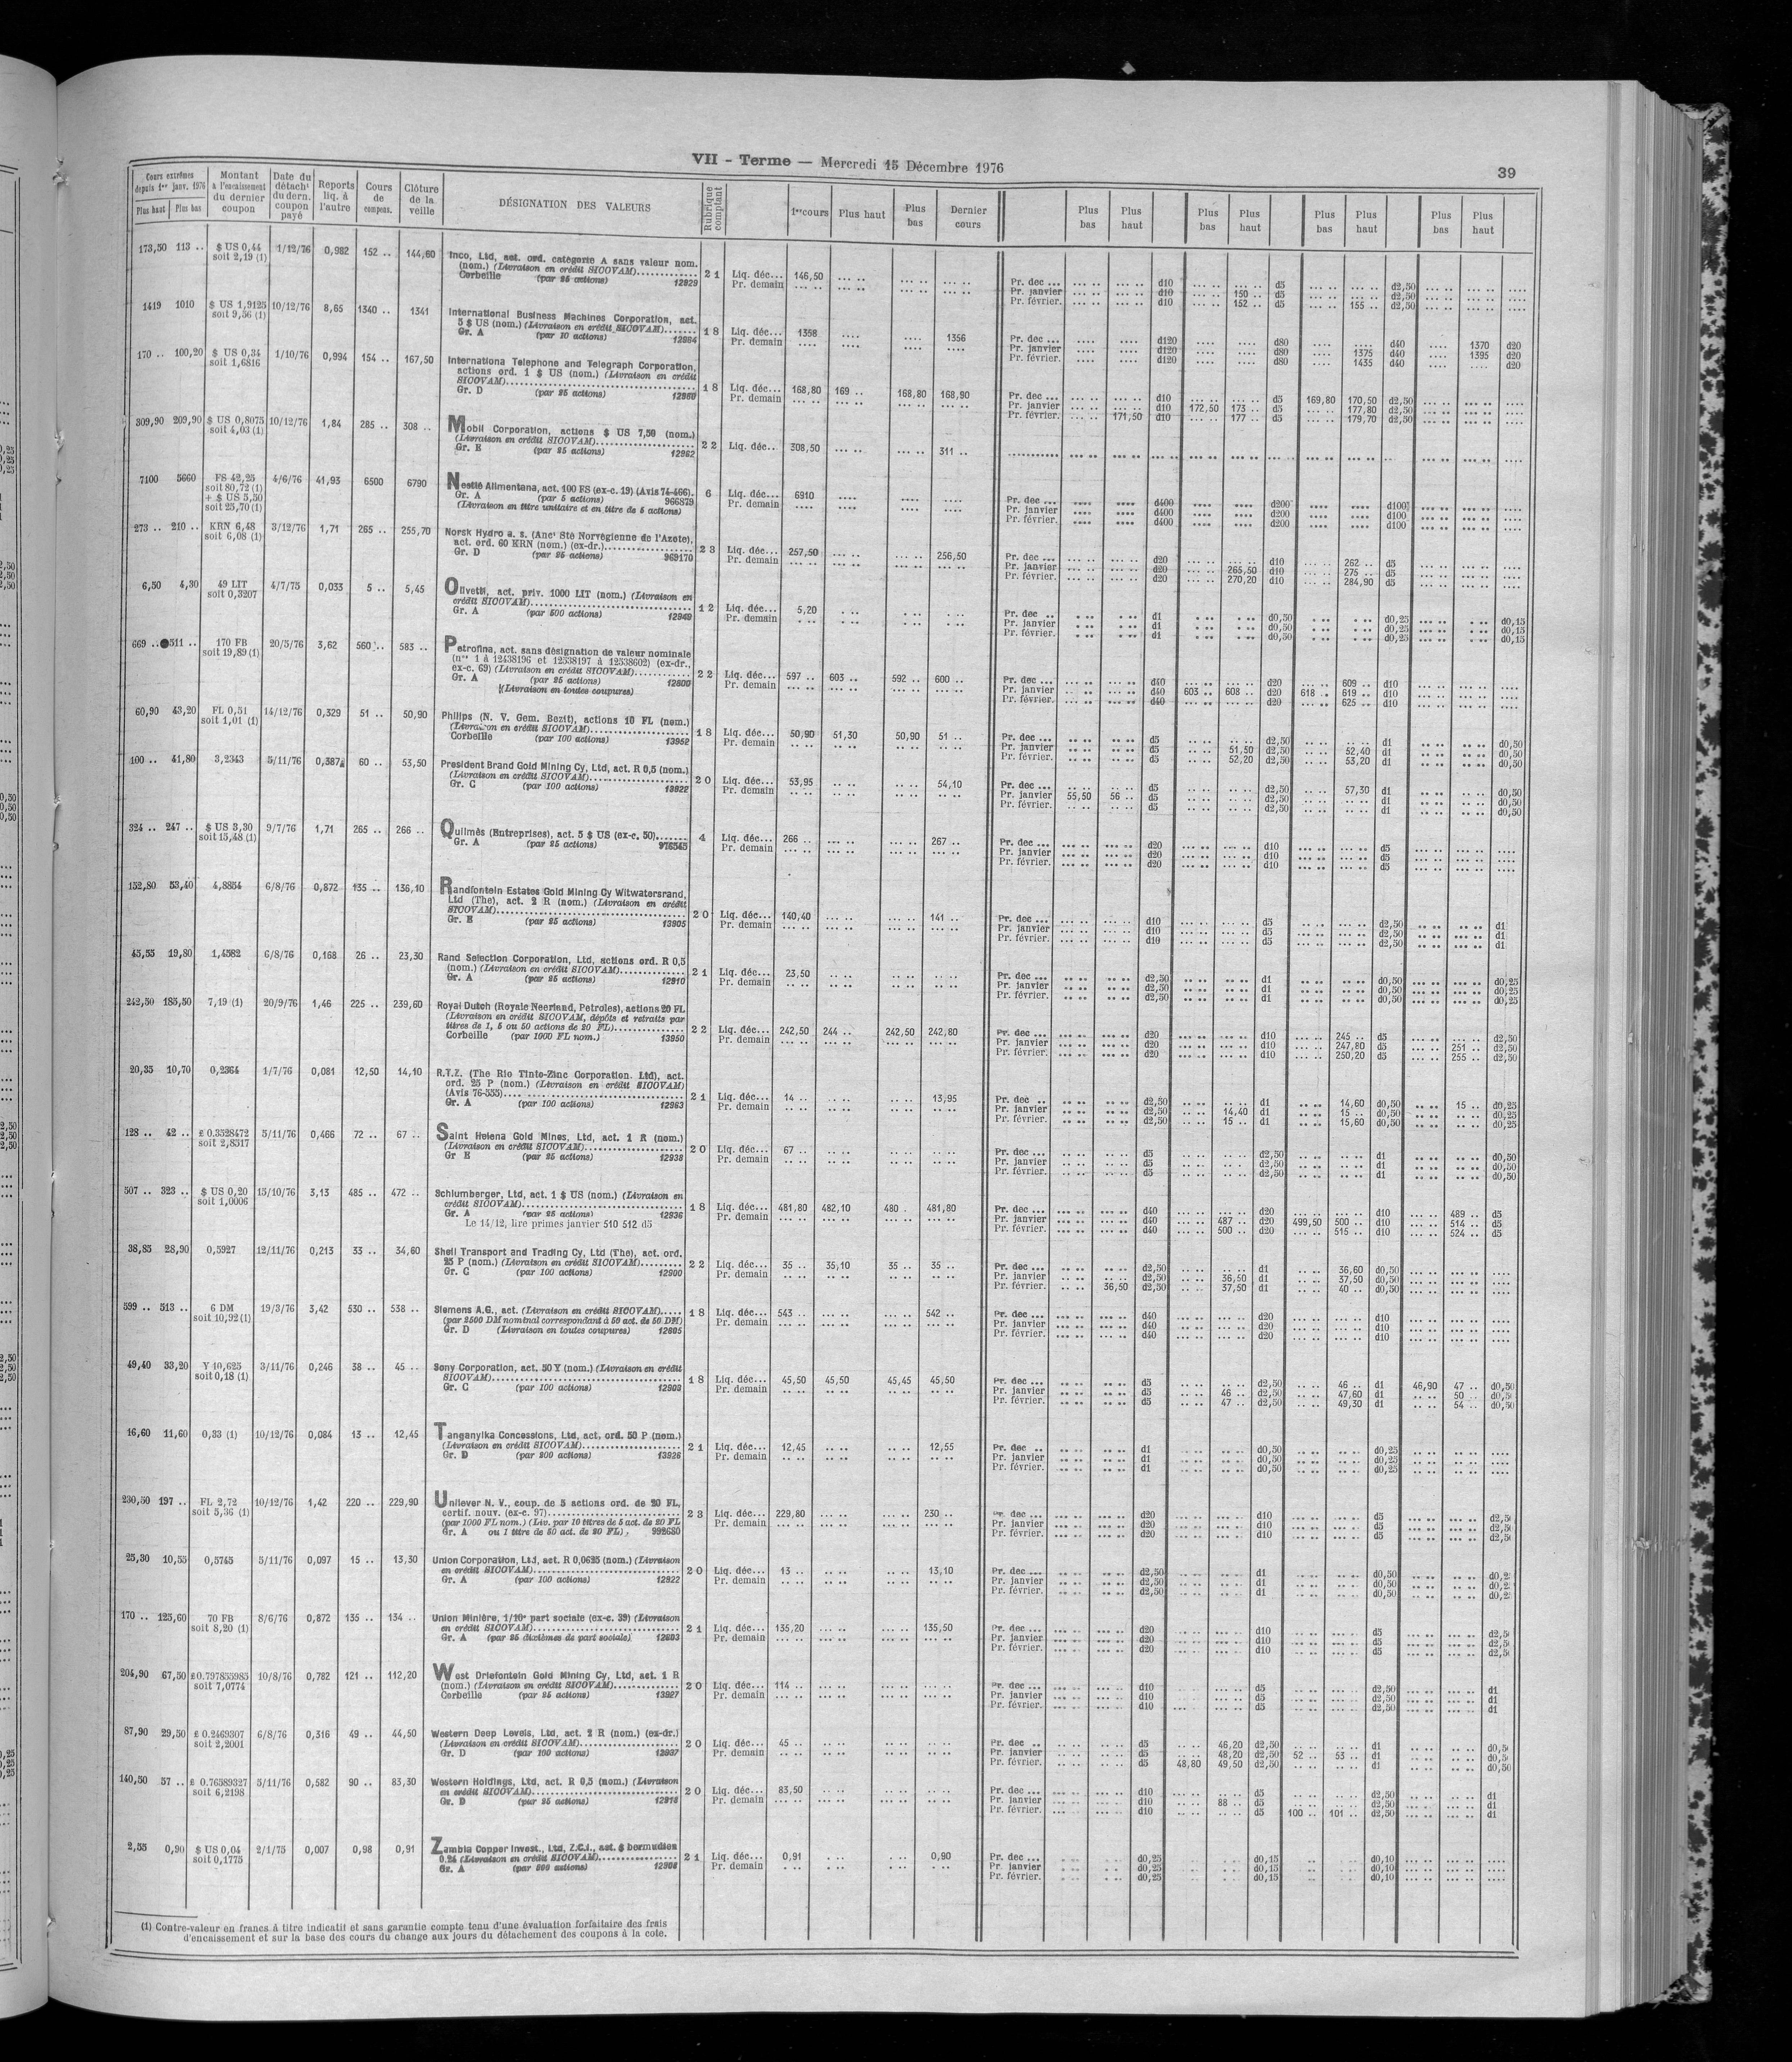 VII - Terme — Mercredi 15 Décembre 1976
39
Cours extrêmes depuis 1er janv. 1976 Plus haut Plus bas
Montant à l'encaissement du dernier coupon
Date du détacht du dern. coupon payé
Reports liq. à l'autre
Cours de compens.
Clôture de la veille
DÉSIGNATION DES VALEURS
Rubrique comptant
1er cours Plus haut Plus bas Dernier cours
Plus bas Plus haut Plus bas Plus haut Plus bas Plus haut Plus bas Plus haut
173,50 113 .. $ US 0,44 1/12/76 0,982 152 .. 144,60 Inco, Ltd, act. ord. catégorie A sans valeur nom.
soit 2,19 (1) (nom.) (Livraison en crédit SICOVAM)
Corbeille (par 25 actions) 12929 21 Liq. déc... 146,50
Pr. demain
Pr. dec ... d10 d5 d2,50
Pr. janvier d10 150 .. d5 d2,50
Pr. février. d10 152 .. d5 155 .. d2,50
1419 1010 $ US 1,9125 10/12/76 8,65 1340 .. 1341 International Business Machines Corporation, act.
soit 9,56 (1) 5 $ US (nom.) (Livraison en crédit SICOVAM)
Gr. A (par 10 actions) 12984 18 Liq. déc... 1358 1356
Pr. demain
Pr. dec ... d120 d80 d40 1370 d20
Pr. janvier d120 d80 1375 d40 1395 d20
Pr. février. d120 d80 1435 d40 d20
170 .. 100,20 $ US 0,34 1/10/76 0,994 154 .. 167,50 Internationa Telephone and Telegraph Corporation,
soit 1,6816 actions ord. 1 $ US (nom.) (Livraison en crédit
SICOVAM)
Gr. D (par 25 actions) 12960 18 Liq. déc... 168,80 169 .. 168,80 168,90
Pr. demain
Pr. dec ... d10 d5 169,80 170,50 d2,50
Pr. janvier d10 172,50 173 .. d5 177,80 d2,50
Pr. février. 171,50 d10 177 .. d5 179,70 d2,50
309,90 209,90 $ US 0,8075 10/12/76 1,84 285 .. 308 .. Mobil Corporation, actions $ US 7,50 (nom.)
soit 4,03 (1) (Livraison en crédit SICOVAM)
Gr. E (par 25 actions) 12962 22 Liq. déc... 308,50 311 ..
7100 5660 FS 42,25 4/6/76 41,93 6500 6790 Nestlé Alimentana, act. 100 FS (ex-c. 19) (Avis 74-466).
soit 80,72 (1) Gr. A (par 5 actions) 966879 6 Liq. déc... 6910
+ $ US 5,50 (Livraison en titre unitaire et en titre de 5 actions) Pr. demain
soit 25,70 (1)
Pr. dec ... d400 d200 d100
Pr. janvier d400 d200 d100
Pr. février. d400 d200 d100
273 .. 210 .. KRN 6,48 3/12/76 1,71 265 .. 255,70 Norsk Hydro a. s. (Anct Sté Norvégienne de l'Azote),
soit 6,08 (1) act. ord. 60 KRN (nom.) (ex-dr.)
Gr. D (par 25 actions) 969170 23 Liq. déc... 257,50 256,50
Pr. demain
Pr. dec ... d20 d10 262 .. d5
Pr. janvier d20 265,50 d10 275 .. d5
Pr. février. d20 270,20 d10 284,90 d5
6,50 4,30 49 LIT 4/7/75 0,033 5 .. 5,45 Olivetti, act. priv. 1000 LIT (nom.) (Livraison en
soit 0,3207 crédit SICOVAM)
Gr. A (par 500 actions) 12949 12 Liq. déc... 5,20
Pr. demain
Pr. dec .. d1 d0,50 d0,25 d0,15
Pr. janvier d1 d0,50 d0,25 d0,15
Pr. février. d1 d0,50 d0,25 d0,15
669 .. 511 .. 170 FB 20/5/76 3,62 560 .. 583 .. Petrofina, act. sans désignation de valeur nominale
soit 19,89 (1) (nos 1 à 12438196 et 12538197 à 12538602) (ex-dr.,
ex-c. 69) (Livraison en crédit SICOVAM)
Gr. A (par 25 actions) 12800 22 Liq. déc... 597 .. 603 .. 592 .. 600 ..
(Livraison en toutes coupures) Pr. demain
Pr. dec ... d40 d20 609 .. d10
Pr. janvier d40 603 .. 608 .. d20 618 .. 619 .. d10
Pr. février. d40 d20 625 .. d10
60,90 43,20 FL 0,51 14/12/76 0,329 51 .. 50,90 Philips (N. V. Gem. Bezit), actions 10 FL (nom.)
soit 1,01 (1) (Livraison en crédit SICOVAM)
Corbeille (par 100 actions) 13952 18 Liq. déc... 50,90 51,30 50,90 51 ..
Pr. demain
Pr. dec ... d5 d2,50 d1 d0,50
Pr. janvier d5 51,50 d2,50 52,40 d1 d0,50
Pr. février. d5 52,20 d2,50 53,20 d1 d0,50
100 .. 41,80 3,2343 5/11/76 0,387 60 .. 53,50 President Brand Gold Mining Cy, Ltd, act. R 0,5 (nom.)
(Livraison en crédit SICOVAM)
Gr. C (par 100 actions) 13922 20 Liq. déc... 53,95 54,10
Pr. demain
Pr. dec ... d5 d2,50 57,30 d1 d0,50
Pr. janvier 55,50 56 .. d5 d2,50 d1 d0,50
Pr. février. d5 d2,50 d1 d0,50
324 .. 247 .. $ US 3,30 9/7/76 1,71 265 .. 266 .. Quilmès (Entreprises), act. 5 $ US (ex-c. 50)
soit 15,48 (1) Gr. A (par 25 actions) 976545 4 Liq. déc... 266 .. 267 ..
Pr. demain
Pr. dec ... d20 d10 d5
Pr. janvier d20 d10 d5
Pr. février. d20 d10 d5
152,80 53,40 4,8854 6/8/76 0,872 135 .. 136,10 Randfontein Estates Gold Mining Cy Witwatersrand,
Ltd (The), act. 2 R (nom.) (Livraison en crédit
SICOVAM)
Gr. E (par 25 actions) 13905 20 Liq. déc... 140,40 141 ..
Pr. demain
Pr. dec ... d10 d5 d2,50 d1
Pr. janvier d10 d5 d2,50 d1
Pr. février. d10 d5 d2,50 d1
45,55 19,80 1,4582 6/8/76 0,168 26 .. 23,30 Rand Selection Corporation, Ltd, actions ord. R 0,5
(nom.) (Livraison en crédit SICOVAM)
Gr. A (par 25 actions) 12910 21 Liq. déc... 23,50
Pr. demain
Pr. dec ... d2,50 d1 d0,50 d0,25
Pr. janvier d2,50 d1 d0,50 d0,25
Pr. février. d2,50 d1 d0,50 d0,25
242,50 185,50 7,19 (1) 20/9/76 1,46 225 .. 239,60 Royal Dutch (Royale Neerland, Petroles), actions 20 FL
(Livraison en crédit SICOVAM, dépôts et retraits par
titres de 1, 5 ou 50 actions de 20 FL)
Corbeille (par 1000 FL nom.) 13950 22 Liq. déc... 242,50 244 .. 242,50 242,80
Pr. demain
Pr. dec ... d20 d10 245 .. d5 d2,50
Pr. janvier d20 d10 247,80 d5 251 .. d2,50
Pr. février. d20 d10 250,20 d5 255 .. d2,50
20,35 10,70 0,2364 1/7/76 0,081 12,50 14,10 R.T.Z. (The Rio Tinto-Zinc Corporation. Ltd), act.
ord. 25 P (nom.) (Livraison en crédit SICOVAM)
(Avis 76-555)
Gr. A (par 100 actions) 12963 21 Liq. déc... 14 .. 13,95
Pr. demain
Pr. dec .. d2,50 d1 14,60 d0,50 15 .. d0,25
Pr. janvier d2,50 14,40 d1 15 .. d0,50 d0,25
Pr. février. d2,50 15 .. d1 15,60 d0,50 d0,25
128 .. 42 .. £ 0.3528472 5/11/76 0,466 72 .. 67 .. Saint Helena Gold Mines, Ltd, act. 1 R (nom.)
soit 2,8517 (Livraison en crédit SICOVAM)
Gr E (par 25 actions) 12938 20 Liq. déc... 67 ..
Pr. demain
Pr. dec ... d5 d2,50 d1 d0,50
Pr. janvier d5 d2,50 d1 d0,50
Pr. février. d5 d2,50 d1 d0,50
507 .. 323 .. $ US 0,20 15/10/76 3,13 485 .. 472 .. Schlumberger, Ltd, act. 1 $ US (nom.) (Livraison en
soit 1,0006 crédit SICOVAM)
Gr. A (par 25 actions) 12936 18 Liq. déc... 481,80 482,10 480 . 481,80
Le 14/12, lire primes janvier 510 512 d5 Pr. demain
Pr. dec ... d40 d20 d10 489 .. d5
Pr. janvier d40 487 .. d20 499,50 500 .. d10 514 .. d5
Pr. février. d40 500 .. d20 515 .. d10 524 .. d5
38,85 28,90 0,5927 12/11/76 0,213 33 .. 34,60 Shell Transport and Trading Cy, Ltd (The), act. ord.
25 P (nom.) (Livraison en crédit SICOVAM)
Gr. C (par 100 actions) 12900 22 Liq. déc... 35 .. 35,10 35 .. 35 ..
Pr. demain
Pr. dec ... d2,50 d1 36,60 d0,50
Pr. janvier d2,50 36,50 d1 37,50 d0,50
Pr. février. 36,50 d2,50 37,50 d1 40 .. d0,50
599 .. 513 .. 6 DM 19/3/76 3,42 530 .. 538 .. Siemens A.G., act. (Livraison en crédit SICOVAM)
soit 10,92 (1) (par 2500 DM nominal correspondant à 50 act. de 50 DM)
Gr. D (Livraison en toutes coupures) 12805 18 Liq. déc... 543 .. 542 ..
Pr. demain
Pr. dec ... d40 d20 d10
Pr. janvier d40 d20 d10
Pr. février. d40 d20 d10
49,40 33,20 Y 10,625 3/11/76 0,246 38 .. 45 .. Sony Corporation, act. 50 Y (nom.) (Livraison en crédit
soit 0,18 (1) SICOVAM)
Gr. C (par 100 actions) 12903 18 Liq. déc... 45,50 45,50 45,45 45,50
Pr. demain
Pr. dec ... d5 d2,50 46 .. d1 46,90 47 .. d0,50
Pr. janvier d5 46 .. d2,50 47,60 d1 50 .. d0,50
Pr. février. d5 47 .. d2,50 49,30 d1 54 .. d0,50
16,60 11,60 0,33 (1) 10/12/76 0,084 13 .. 12,45 Tanganyika Concessions, Ltd, act. ord. 50 P (nom.)
(Livraison en crédit SICOVAM)
Gr. D (par 200 actions) 13926 21 Liq. déc... 12,45 12,55
Pr. demain
Pr. dec .. d1 d0,50 d0,25
Pr. janvier d1 d0,50 d0,25
Pr. février. d1 d0,50 d0,25
230,50 197 .. FL 2,72 10/12/76 1,42 220 .. 229,90 Unilever N. V., coup. de 5 actions ord. de 20 FL,
soit 5,36 (1) certif. nouv. (ex-c. 97)
(par 1000 FL nom.) (Liv. par 10 titres de 5 act. de 20 FL
Gr. A ou 1 titre de 50 act. de 20 FL), 992680 23 Liq. déc... 229,80 230 ..
Pr. demain
Pr. dec ... d20 d10 d5 d2,5
Pr. janvier d20 d10 d5 d2,5
Pr. février. d20 d10 d5 d2,5
25,30 10,55 0,5745 5/11/76 0,097 15 .. 13,30 Union Corporation, Ltd, act. R 0,0625 (nom.) (Livraison
en crédit SICOVAM)
Gr. A (par 100 actions) 12922 20 Liq. déc... 13 .. 13,10
Pr. demain
Pr. dec ... d2,50 d1 d0,50 d0,2
Pr. janvier d2,50 d1 d0,50 d0,2
Pr. février. d2,50 d1 d0,50 d0,2
170 .. 125,60 70 FB 8/6/76 0,872 135 .. 134 .. Union Minière, 1/10e part sociale (ex-c. 39) (Livraison
soit 8,20 (1) en crédit SICOVAM)
Gr. A (par 25 dixièmes de part sociale) 12803 21 Liq. déc... 135,20 135,50
Pr. demain
Pr. dec ... d20 d10 d5 d2,5
Pr. janvier d20 d10 d5 d2,5
Pr. février. d20 d10 d5 d2,5
204,90 67,50 £0.797855985 10/8/76 0,782 121 .. 112,20 West Driefontein Gold Mining Cy, Ltd, act. 1 R
soit 7,0774 (nom.) (Livraison en crédit SICOVAM)
Corbeille (par 25 actions) 13927 20 Liq. déc... 114 ..
Pr. demain
Pr. dec ... d10 d5 d2,50 d1
Pr. janvier d10 d5 d2,50 d1
Pr. février. d10 d5 d2,50 d1
87,90 29,50 £ 0.2469307 6/8/76 0,316 49 .. 44,50 Western Deep Levels, Ltd, act. 2 R (nom.) (ex-dr.)
soit 2,2001 (Livraison en crédit SICOVAM)
Gr. D (par 100 actions) 12937 20 Liq. déc... 45 ..
Pr. demain
Pr. dec .. d5 46,20 d2,50 d1 d0,5
Pr. janvier d5 48,20 d2,50 52 .. 53 .. d1 d0,5
Pr. février. d5 48,80 49,50 d2,50 d1 d0,50
140,50 57 .. £ 0.76589327 5/11/76 0,582 90 .. 83,30 Western Holdings, Ltd, act. R 0,5 (nom.) (Livraison
soit 6,2198 en crédit SICOVAM)
Gr. D (par 25 actions) 12918 20 Liq. déc... 83,50
Pr. demain
Pr. dec ... d10 d5 d2,50 d1
Pr. janvier d10 88 .. d5 d2,50 d1
Pr. février. d10 d5 100 .. 101 .. d2,50 d1
2,55 0,90 $ US 0,04 2/1/75 0,007 0,98 0,91 Zambia Copper Invest., Ltd, Z.C.I., act. $ bermudien
soit 0,1775 0,24 (Livraison en crédit SICOVAM)
Gr. A (par 500 actions) 21 Liq. déc... 0,91 0,90
Pr. demain
Pr. dec ... d0,25 d0,15 d0,10
Pr. janvier d0,25 d0,15 d0,10
Pr. février. d0,25 d0,15 d0,10
(1) Contre-valeur en francs à titre indicatif et sans garantie compte tenu d'une évaluation forfaitaire des frais
d'encaissement et sur la base des cours du change aux jours du détachement des coupons à la cote.